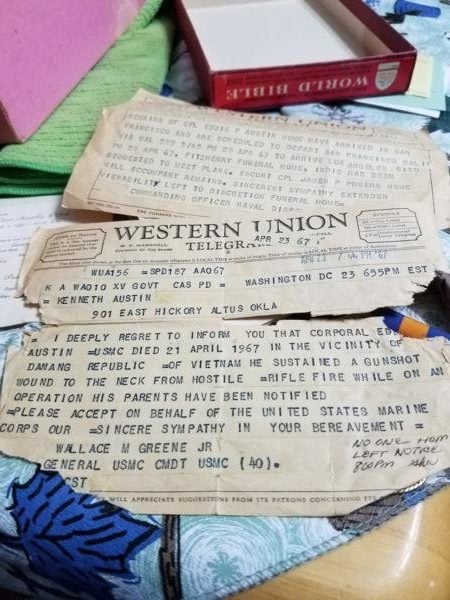 WORLD BIBLE
REMAINS OF CPL EDDIE P AUSTIN HAVE ARRIVED IN SAN
FRANCISCO AND ARE SCHEDULED TO DEPART SAN FRANCISCO CALIF
VIA UAL
PM 28 APR 67. FITZHENRY FUNERAL HOME, INDIO HAS BEEN
REQUESTED TO MEET PLANE. ESCORT CPL JAMES POWERS USMC
WILL ACCOMPANY REMAINS. SINCEREST SYMPATHY EXTENDED
LEFT TO DISCRETION FUNERAL HOME.
COMMANDING OFFICER NAVAL
WESTERN UNION
TELEGRAM
W. P. MARSHALL
APR 23 67
WUA156 =SPD187 AA067
K A WA010 XV GOVT CAS PD = WASHINGTON DC 23 655PM EST
= KENNETH AUSTIN
901 EAST HICKORY ALTUS OKLA
= I DEEPLY REGRET TO INFORM YOU THAT CORPORAL
AUSTIN =USMC DIED 21 APRIL 1967 IN THE VICINITY OF
DANANG REPUBLIC =OF VIETNAM HE SUSTAINED A GUNSHOT
WOUND TO THE NECK FROM HOSTILE =RIFLE FIRE WHILE ON AN
OPERATION HIS PARENTS HAVE BEEN NOTIFIED
=PLEASE ACCEPT ON BEHALF OF THE UNITED STATES MARINE
CORPS OUR =SINCERE SYMPATHY IN YOUR BEREAVEMENT =
WALLACE M GREENE JR
GENERAL USMC CMDT USMC (40).
CST
NO ONE HOME
LEFT NOTICE
800PM
WILL APPRECIATE SUGGESTIONS FROM ITS PATRONS CONCERNING ITS